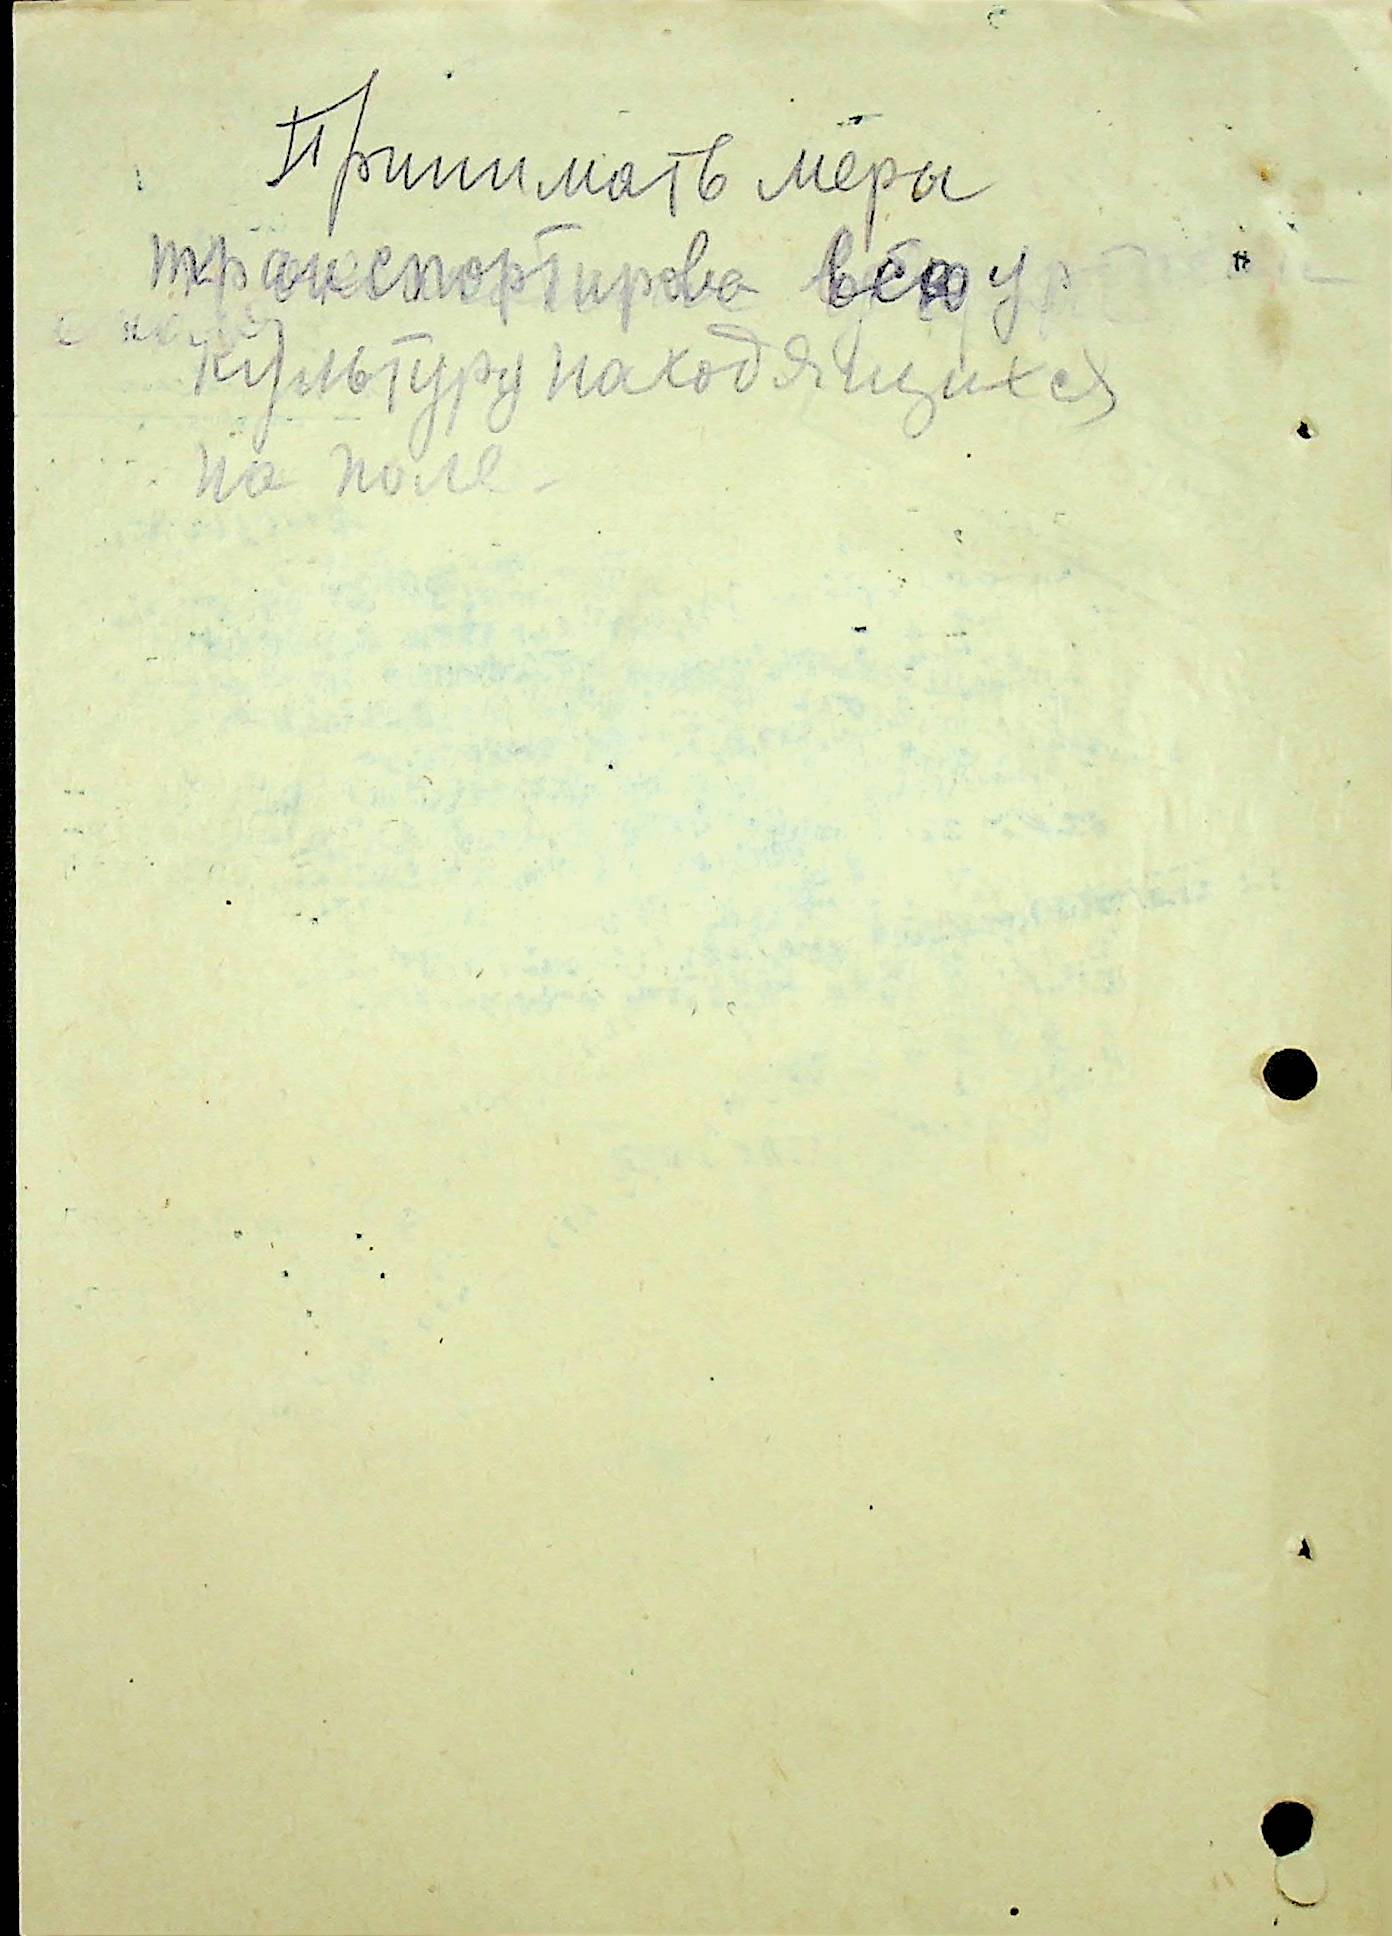 Принимать меры
транспортирова всю
культуру находящихся
на поле.